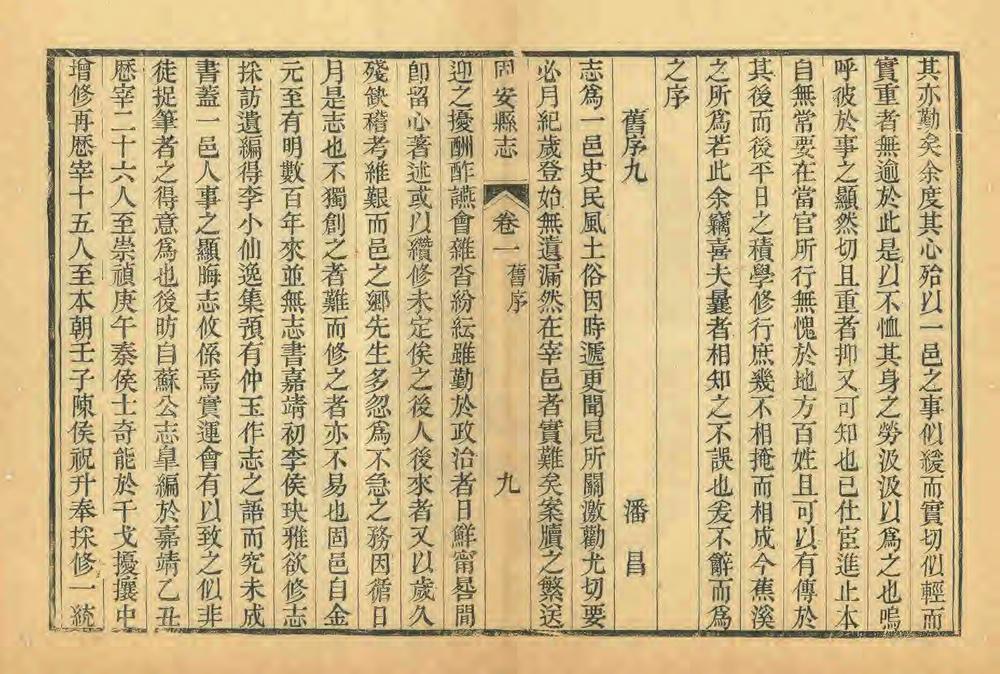 其亦勤矣余度其心殆以一邑之事似緩而實切似輕而
實重者無逾於此是以不恤其身之勞汲汲以為之也嗚
呼彼於事之顯然切且重者抑又可知也已仕宦進止本
自無常要在當官所行無愧於地方百姓且可以有傳於
其後而後平日之積學修行庶幾不相掩而相成今蕉溪
之所為若此余竊喜夫曩者相知之不誤也爰不辭而為
之序
舊序九 潘昌
志為一邑史民風土俗因時遞更聞見所關激勸尤切要
必月紀歲登始無遺漏然在宰邑者實難矣案牘之繁送
固安縣志 卷一 舊序 九
迎之擾酬酢讌會雜沓紛紜雖勤於政治者日鮮甯晷間
卽留心著述或以纘修未定俟之後人後來者又以歲久
殘缺稽考維艱而邑之鄉先生多忽為不急之務因循日
月是志也不獨創之者難而修之者亦不易也固邑自金
元至有明數百年來並無志書嘉靖初李侯玦雅欲修志
採訪遺編得李小仙逸集預有仲玉作志之語而究未成
書蓋一邑人事之顯晦志攸係焉實運會有以致之似非
徒捉筆者之得意為也後昉自蘇公志皐編於嘉靖乙丑
歷宰二十六人至崇禎庚午秦侯士奇能於干戈擾攘中
增修再歷宰十五人至本朝壬子陳侯祝升奉採修一統